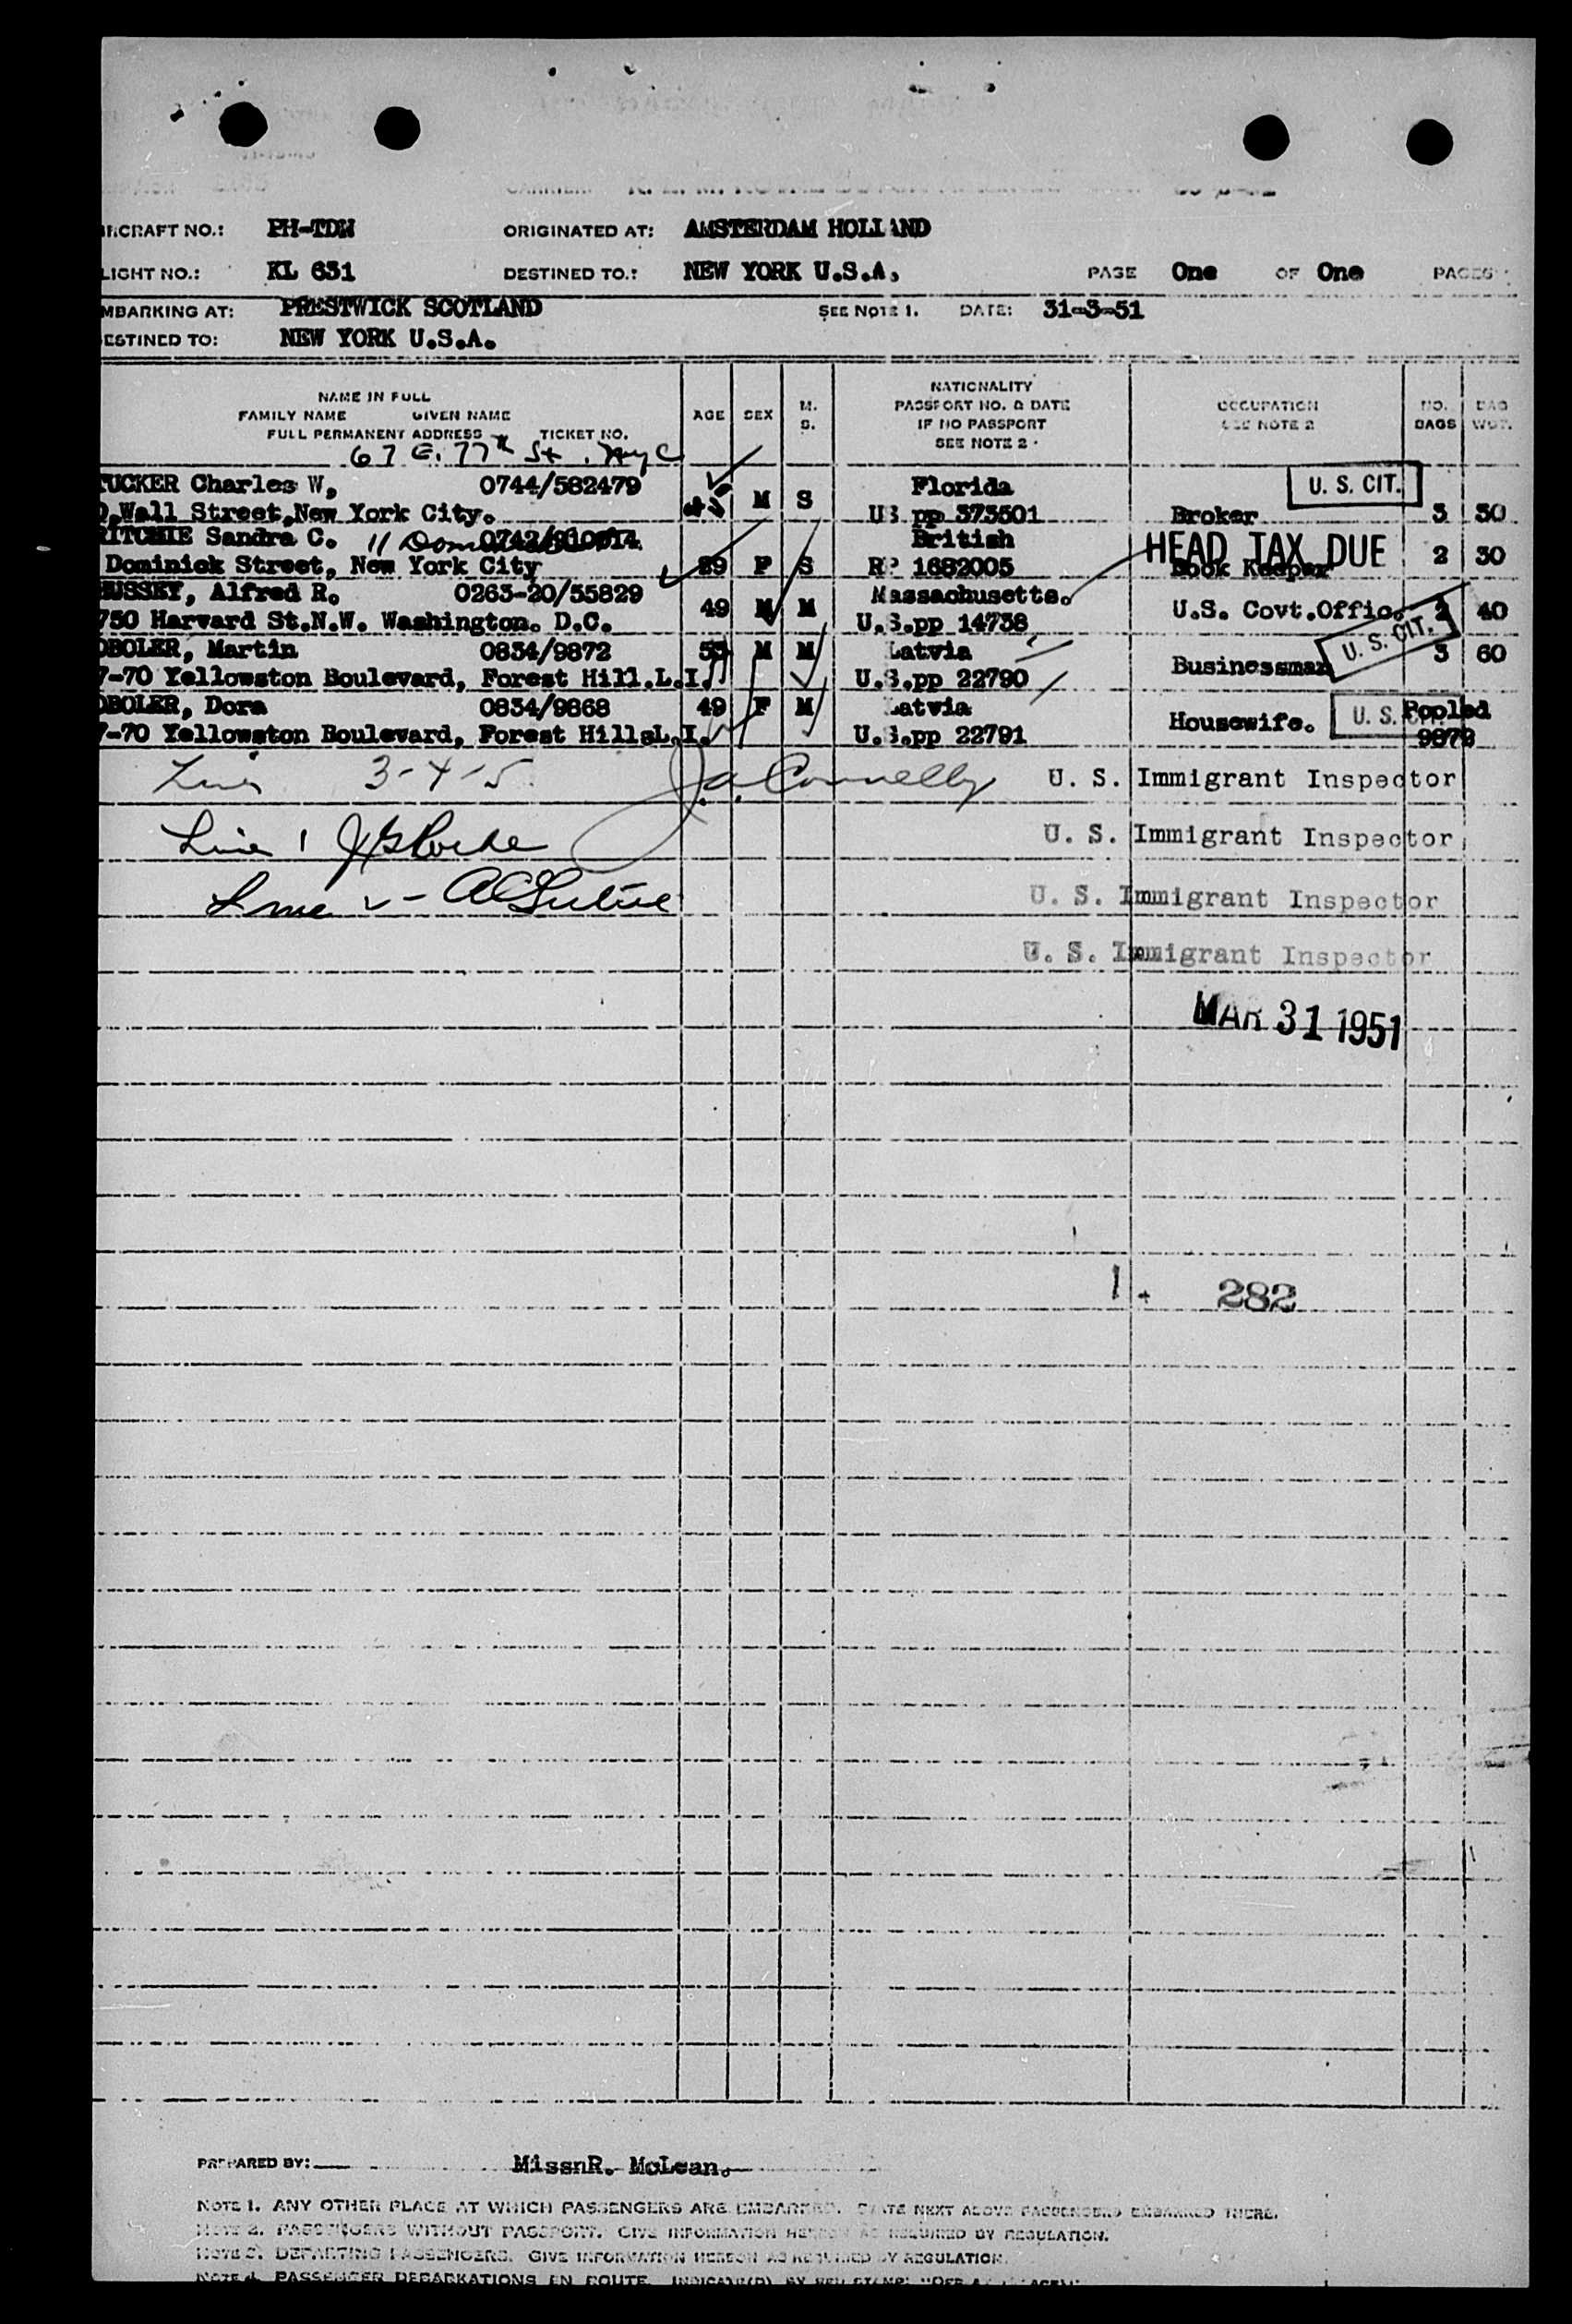 IRCRAFT NO.: PH-TDW ORIGINATED AT: AMSTERDAM HOLLAND
LIGHT NO.: KL 631 DESTINED TO.: NEW YORK U.S.A. PAGE One OF One PAGES
MBARKING AT: PRESTWICK SCOTLAND SEE NOTE 1. DATE: 31-3-51
ESTINED TO: NEW YORK U.S.A.
NAME IN FULL
FAMILY NAME GIVEN NAME
FULL PERMANENT ADDRESS TICKET NO.
AGE SEX M. S.
NATIONALITY
PASSPORT NO. & DATE
IF NO PASSPORT
SEE NOTE 2
OCCUPATION
SEE NOTE 2
NO. BAGS
BAG WGT.
67 E. 77th St. NYC
TUCKER Charles W, 0744/582479 M S Florida U. S. CIT.
Wall Street, New York City. US pp 373501 Broker 3 30
RITCHIE Sandra C. 11 British HEAD TAX DUE
Dominick Street, New York City 29 F S 1682005 Book Keeper 2 30
Alfred R. 0263-20/55829 49 M M Massachusetts. U.S. Covt.Offic. 40
750 Harvard St.N.W. Washington. D.C. U.S.pp 14738
OBOLER, Martin 0834/9872 M M Latvia U. S. CIT. 3 60
7-70 Yellowston Boulevard, Forest Hill.L.I. U.S.pp 22790 Businessman
OBOLER, Dora 0834/9868 49 F M Latvia Housewife. U. S. Pooled
7-70 Yellowston Boulevard, Forest HillsL.I. U.S.pp 22791 9872
3-4-5 J.A. Connelly U. S. Immigrant Inspector
Line 1 U. S. Immigrant Inspector
Line U. S. Immigrant Inspector
U. S. Immigrant Inspector
MAR 31 1951
1 + 282
PREPARED BY: MissnR. McLean.
NOTE 1. ANY OTHER PLACE AT WHICH PASSENGERS ARE EMBARKED. STATE NEXT ABOVE PASSENGERS EMBARKED THERE.
NOTE 2. PASSENGERS WITHOUT PASSPORT. GIVE INFORMATION HEREON AS REQUIRED BY REGULATION.
NOTE 3. DEPARTING PASSENGERS. GIVE INFORMATION HEREON AS REQUIRED BY REGULATION.
NOTE 4. PASSENGER DEBARKATIONS EN ROUTE.